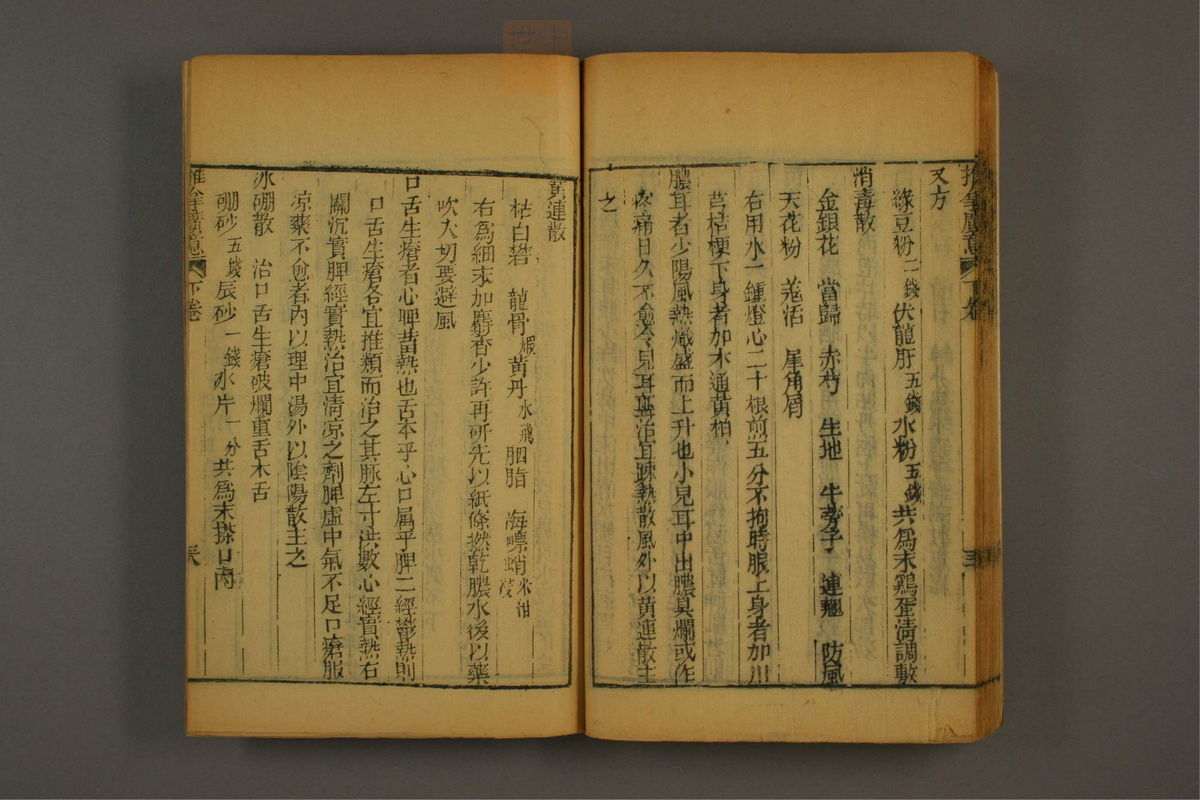 又方
綠豆粉二錢伏龍肝五錢水粉五錢共爲末鷄蛋淸調敷
消毒散
金銀花 當歸 赤芍 生地 牛旁子 連翹 防風
天花粉 羗活 犀角屑
右用水一鍾燈心二十根煎五分不拘時服上身者加川
芎桔梗下身者加木通黃柏
膿耳者少陽風熱熾盛而上升也小兒耳中出膿臭爛或作
疼痛日久不愈冷兒耳聾治宜踈熱散風外以黃連散主
之
黃連散
枯白礬 龍骨煆黃丹水飛胭脂 海螵蛸米泔
右爲細末加麝香少許再硏先以紙條撚乾膿水後以藥
吹入切要避風
口舌生瘡者心脾蓄熱也舌本乎心口属乎脾二經蓄熱則
口舌生瘡各宜推類而治之其脉左寸洪數心經實熱右
關沉實脾經實熱治宜淸凉之劑脾虛中氣不足口瘡服
凉藥不愈者內以理中湯外以陰陽散主之
氷硼散 治口舌生瘡破爛重舌木舌
硼砂五錢辰砂一錢氷片一分共爲末搽口內
推拿廣意 下卷